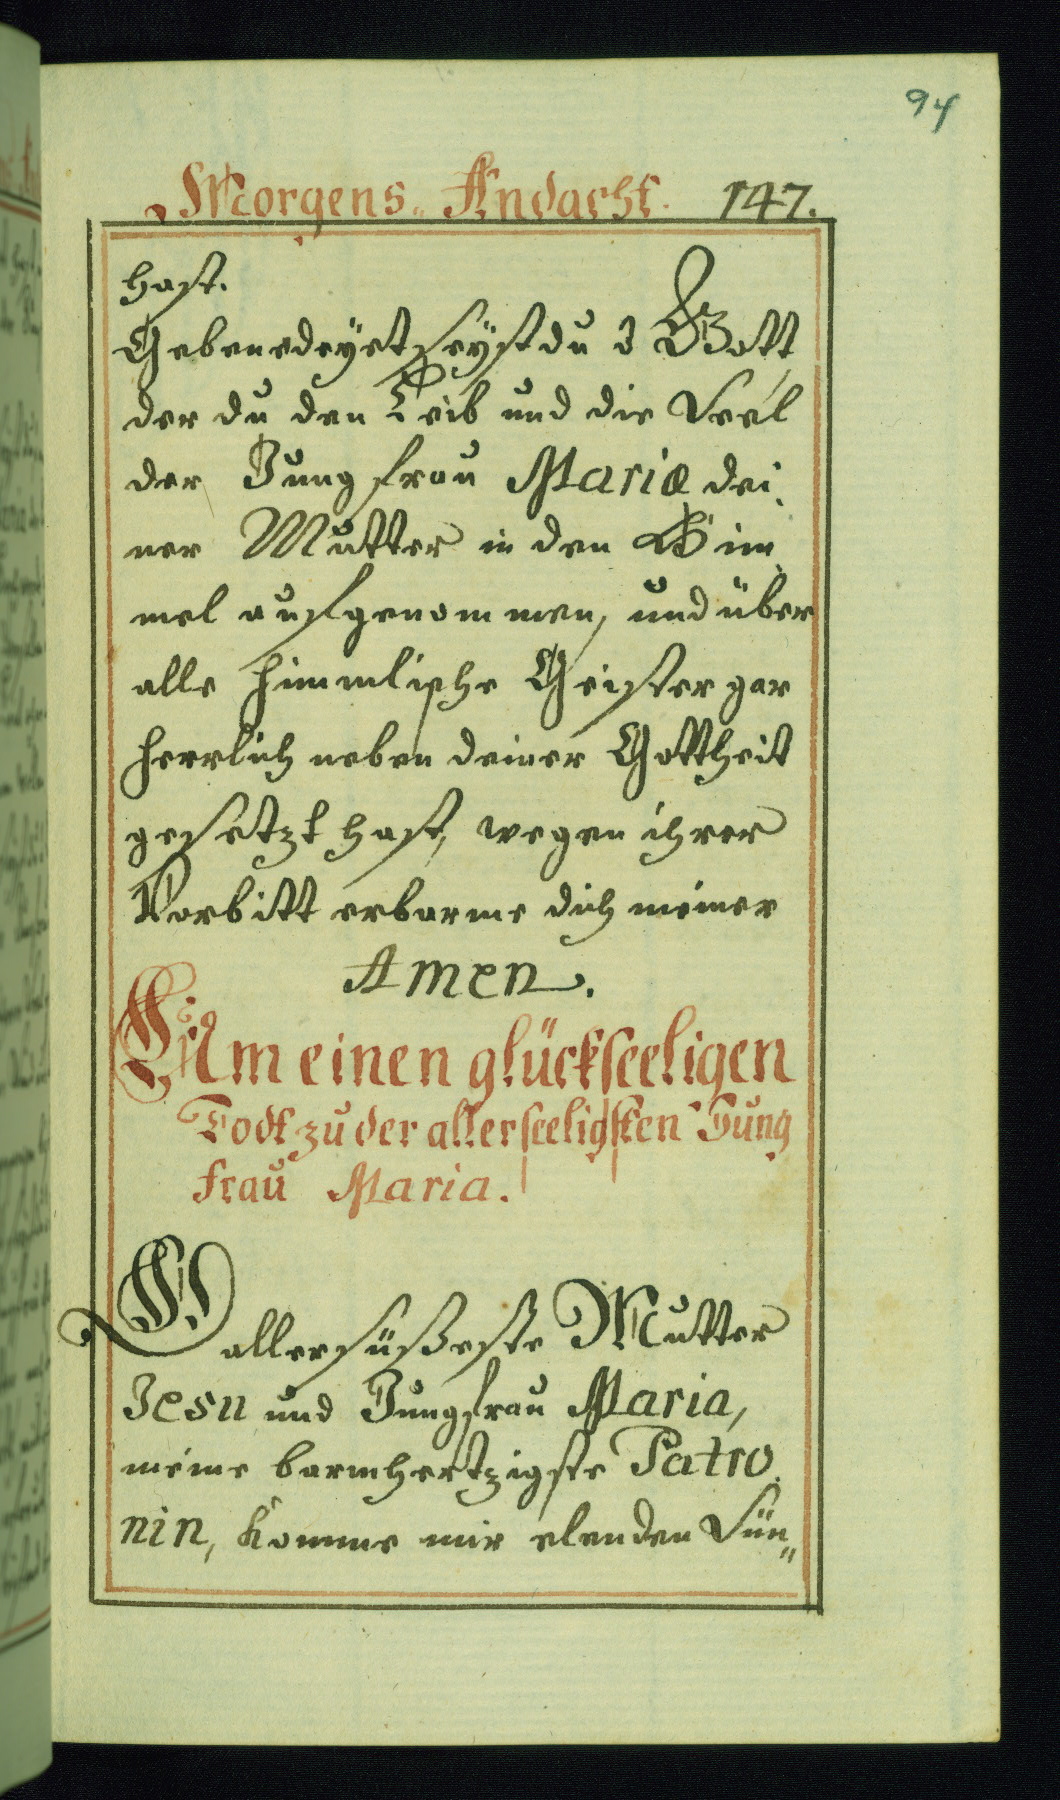 94
Morgens Andacht. 147.
hast.
Gebenedeyet seyst du O Gott
der du den Leib und die Seel
der Jungfrau Mariæ dei,
ner Mutter in den Him,
mel aufgenommen, und über
alle himmlische Geister gar
herrlich neben deiner Gottheit
gesetzt hast, wegen ihrer
Vorbitt erbarme dich meiner
Amen.
Um einen glückseeligen
Todt zu der allerseeligsten Jung
frau Maria.
O allersüßeste Mutter
Jesu und Jungfrau Maria,
meine barmhertzigste Patro,
nin, komme mir elenden Sün„